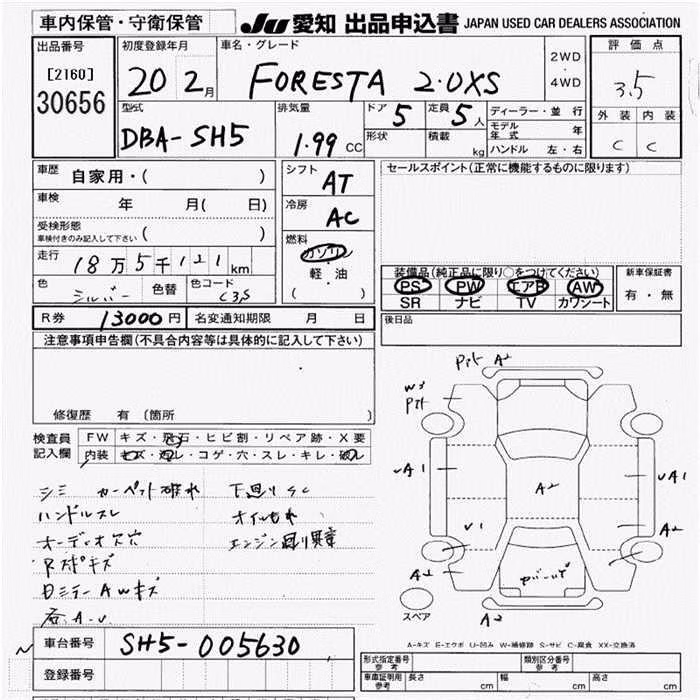 車内保管・守衛保管
JU 愛知 出品申込書 JAPAN USED CAR DEALERS ASSOCIATION
出品番号 [2160] 30656
初度登録年月 20 2月
車名・グレード FORESTA 2.0XS
2WD・4WD
評価点 3.5
外装 内装
C C
型式 DBA-SH5
排気量 1.99 CC
ドア 5
定員 5人
形状
積載 kg
ディーラー・並行
モデル年式 年
ハンドル 左・右
車歴 自家用・( )
車検 年 月( 日)
受検形態 ( )
車検付きのみ記入して下さい
走行 18万5千121km
色 シルバー 色替 色コード C3S
シフト AT
冷房 AC
燃料 ガソリン
軽・油
( )
セールスポイント(正常に機能するものに限ります)
装備品(純正品に限り○をつけてください)
PS PW エアB AW
SR ナビ TV カワシート
新車保証書
有・無
後日品
R券 13000円 名変通知期限 月 日
注意事項申告欄(不具合内容等は具体的に記入して下さい)
修復歴 有 (箇所 )
検査員記入欄
FW キズ・飛石・ヒビ割・リペア跡・X要
内装 キズ・汚レ・コゲ・穴・スレ・キレ・破レ
シミ カーペット破れ 下廻りSC
ハンドルスレ オイルもれ
オーディオ欠穴 エンジン廻り異音
Rスポキズ
AWキズ
A2
W3
A1
A1
A2
U1
A2
A2
A2
スペア
A-キズ E-エクボ U-凹み W-補修跡 S-サビ C-腐食 XX-交換済
車台番号 SH5-005630
登録番号
形式指定番号 参考 類別区分番号 参考
車庫証明用 参考 長さ cm 幅 cm 高さ cm